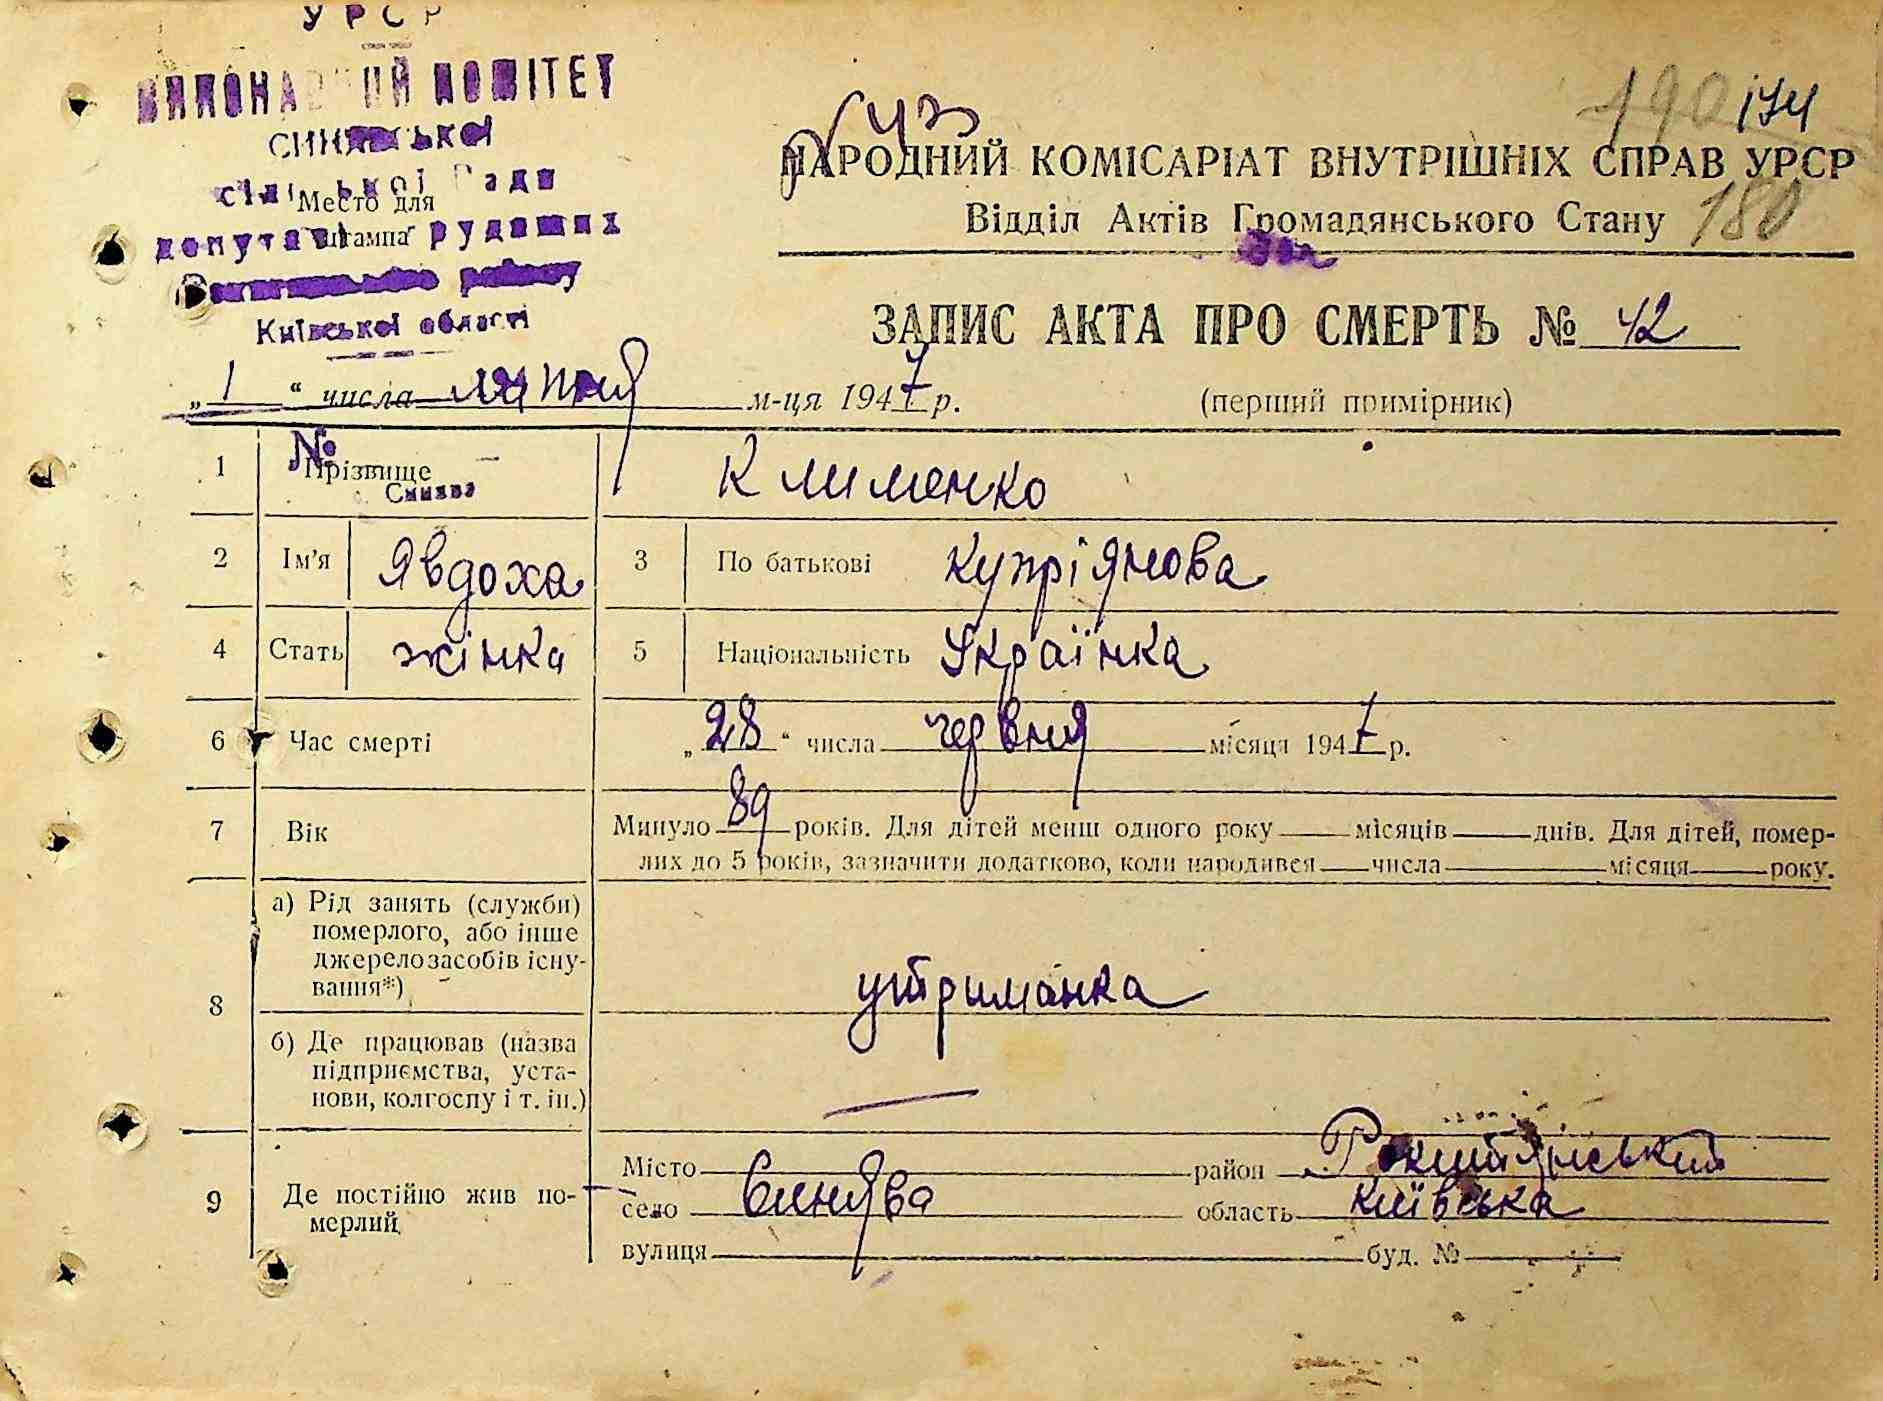 УРСР
ВИКОНАВЧИЙ КОМІТЕТ
СИНЯВСЬКОЇ
сільської Ради
Место для
депутатів трудящих
штампа
району
Київської області
190 174
НАРОДНИЙ КОМІСАРІАТ ВНУТРІШНІХ СПРАВ УРСР
Відділ Актів Громадянського Стану 180
ЗАПИС АКТА ПРО СМЕРТЬ № 42
„1“ числа липня м-ця 1947 р. (перший примірник)
№
1 Прізвище Клименко
Синява
2 Ім'я Явдоха 3 По батькові Купріянова
4 Стать жінка 5 Національність Українка
6 Час смерті „28“ числа червня місяця 1947 р.
7 Вік Минуло 89 років. Для дітей менш одного року місяців днів. Для дітей, помер-
лих до 5 років, зазначити додатково, коли народився числа місяця року.
8 а) Рід занять (служби)
померлого, або інше
джерело засобів існу-
вання*)
утриманка
б) Де працював (назва
підприємства, уста-
нови, колгоспу і т. ін.)
—
9 Де постійно жив по-
мерлий
Місто район Рокитянський
село Синява область київська
вулиця буд. №